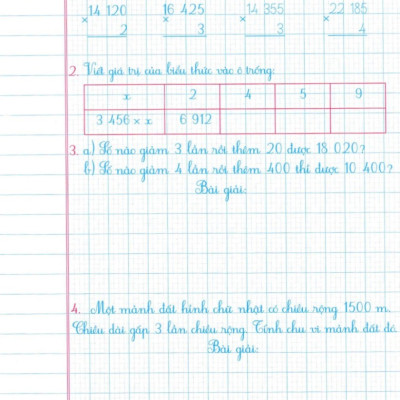 14 120 16 425 14 355 22 185
× 2 × 3 × 3 × 4
2. Viết giá trị của biểu thức vào ô trống:
x 2 4 5 9
3 456 × x 6 912
3. a) Số nào giảm 3 lần rồi thêm 20 được 18 020?
b) Số nào giảm 4 lần rồi thêm 400 thì được 10 400?
Bài giải:
4. Một mảnh đất hình chữ nhật có chiều rộng 1500 m.
Chiều dài gấp 3 lần chiều rộng. Tính chu vi mảnh đất đó.
Bài giải: